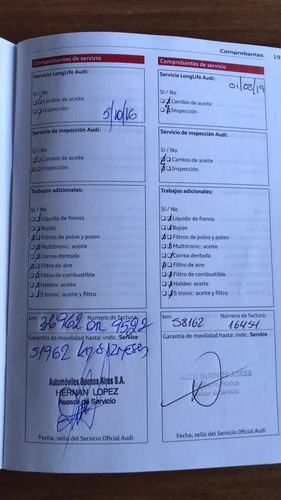 Comprobantes 19
Comprobantes de servicio
Servicio LongLife Audi:
5/10/16
Sí / No
Cambio de aceite
Inspección
Servicio de inspección Audi:
Sí / No
Cambio de aceite
Inspección
Trabajos adicionales:
Sí / No
Líquido de frenos
Bujías
Filtros de polvo y polen
Multitronic: aceite
Correa dentada
Filtro de aire
Filtro de combustible
Haldex: aceite
S tronic: aceite y filtro
km: 36962 Número de factura: 9592
Garantía de movilidad hasta: indic. Service
51962
Automóviles Buenos Aires S.A.
HERNAN LOPEZ
Asesor de Servicio
Fecha, sello del Servicio Oficial Audi
Comprobantes de servicio
Servicio LongLife Audi:
01/08/19
Sí / No
Cambio de aceite
Inspección
Servicio de inspección Audi:
Sí / No
Cambio de aceite
Inspección
Trabajos adicionales:
Sí / No
Líquido de frenos
Bujías
Filtros de polvo y polen
Multitronic: aceite
Correa dentada
Filtro de aire
Filtro de combustible
Haldex: aceite
S tronic: aceite y filtro
km: 58162 Número de factura: 16454
Garantía de movilidad hasta: indic. Service
BUENOS AIRES
Fecha, sello del Servicio Oficial Audi